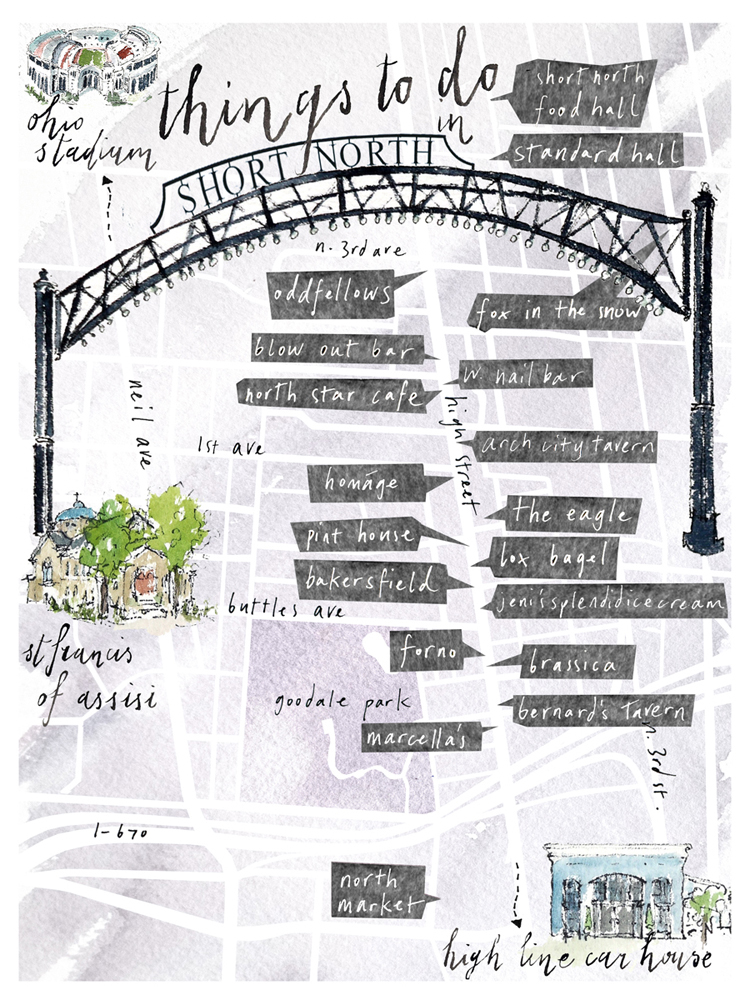 things to do
in
SHORT NORTH
ohio
stadium
short north
food hall
standard hall
n. 3rd ave
oddfellows
fox in the snow
blow out bar
w. nail bar
north star cafe
neil ave
high street
1st ave
arch city tavern
homage
the eagle
pint house
lox bagel
bakersfield
jeni's splendid ice cream
buttles ave
st francis
of assisi
forno
brassica
goodale park
bernard's Tavern
marcella's
n. 3rd st.
I-670
north
market
high line car house